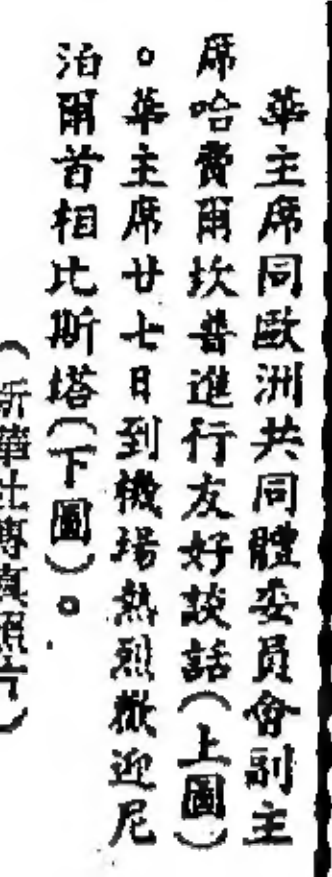 華主席同歐洲共同體委員會副主
席哈費爾坎普進行友好談話(上圖)
。華主席廿七日到機場熱烈歡迎尼
泊爾首相比斯塔(下圖)。
(新華社傳真照片)